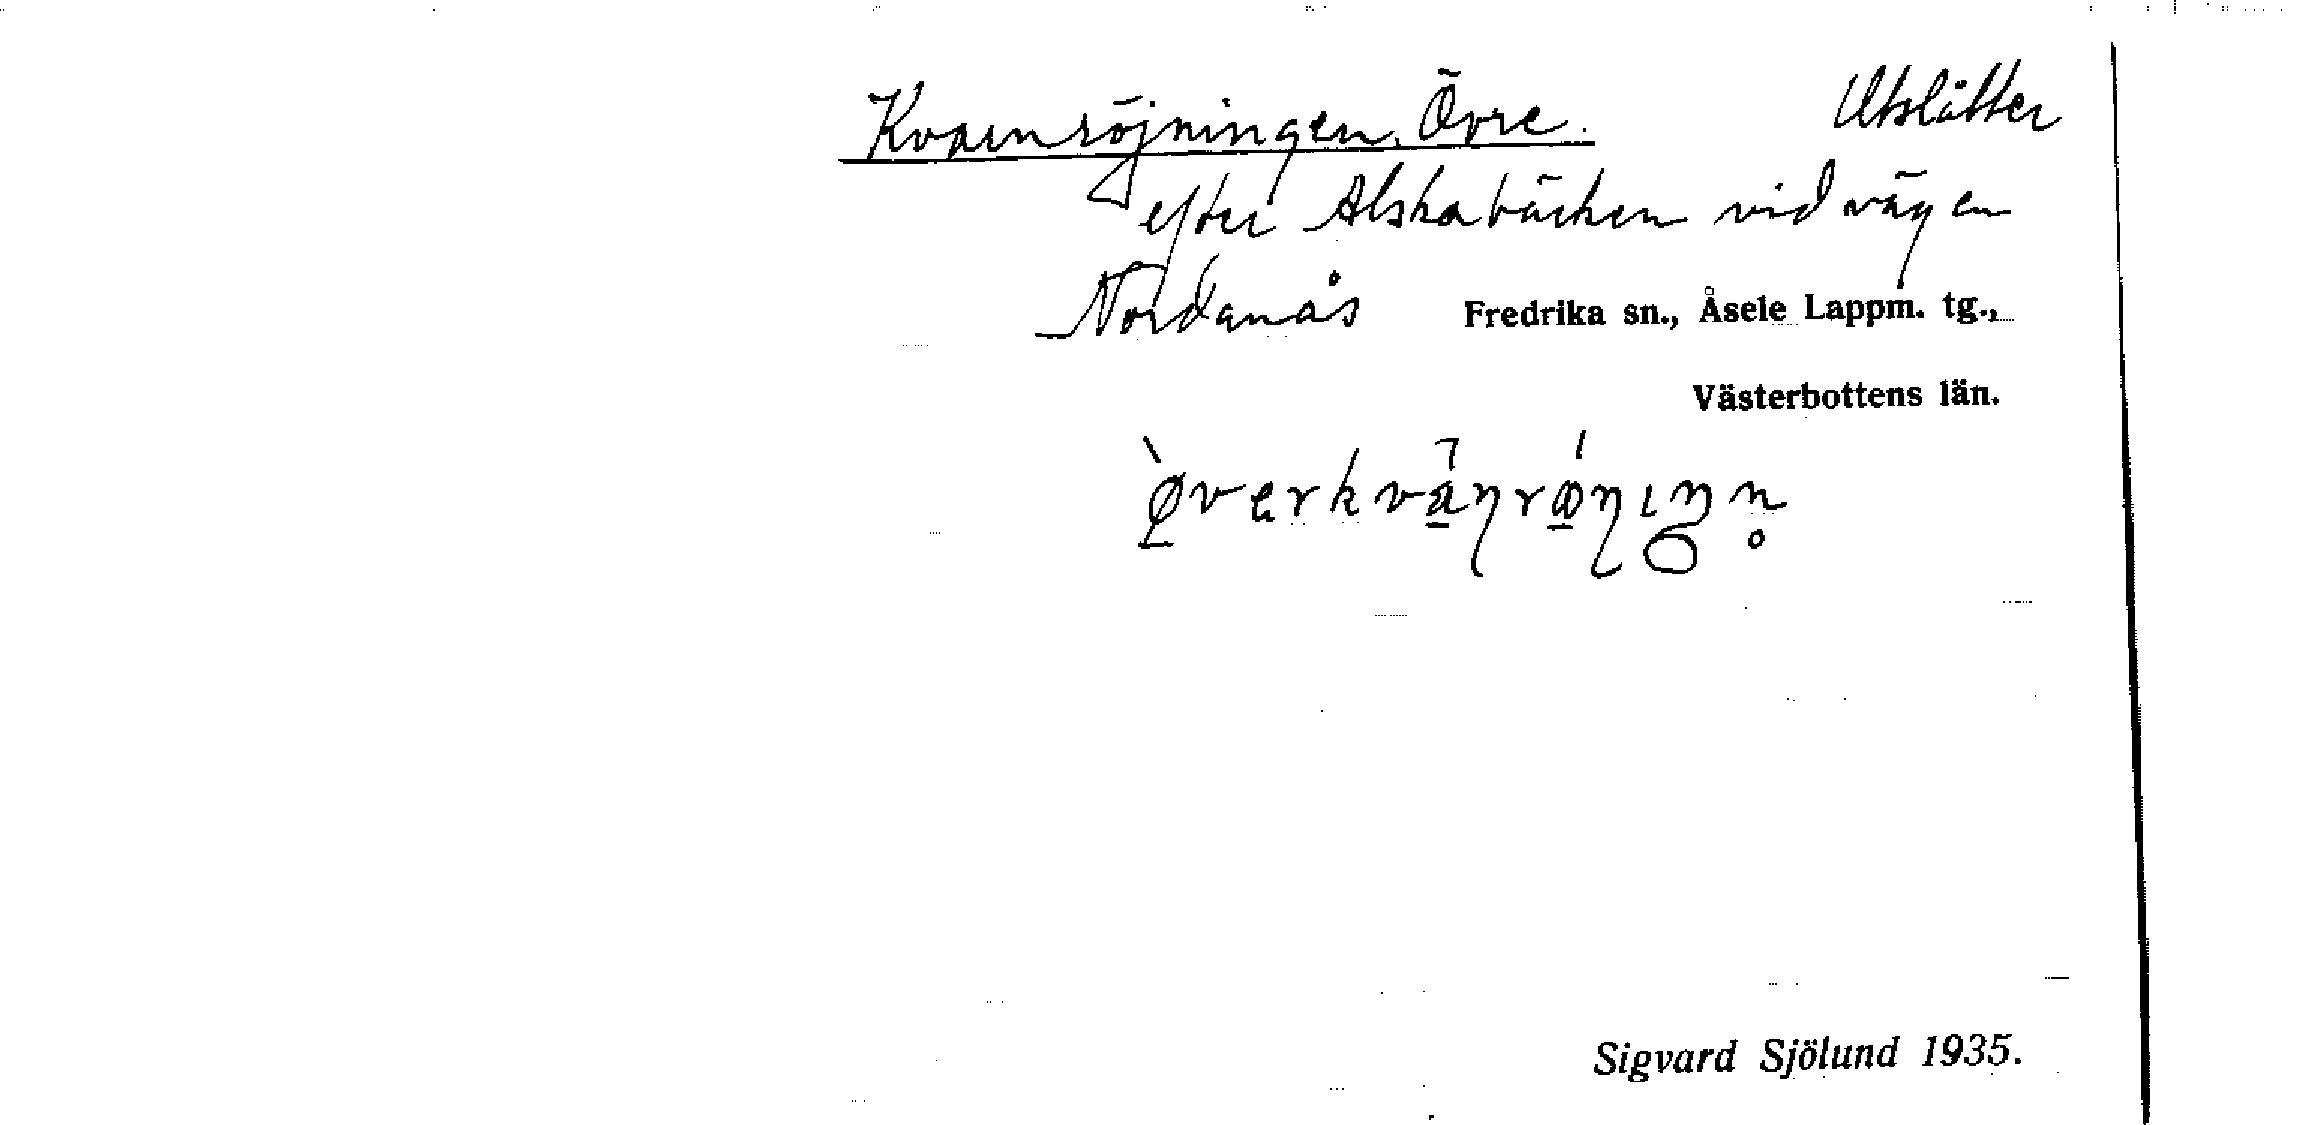 Kvarnröjningen, Övre. Utslåtter
efter Alskabäcken vid vägen
Nordanås Fredrika sn., Åsele Lappm. tg.,
Västerbottens län.
Sigvard Sjölund 1935.